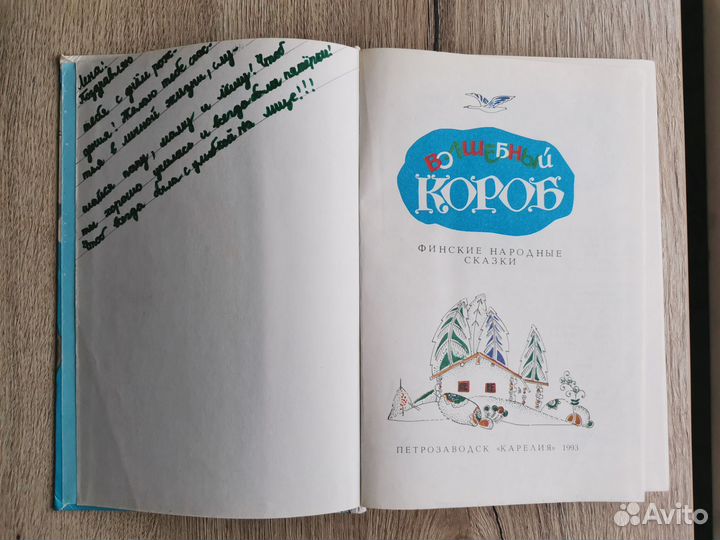 Лена!
Поздравляю
тебя с днём рож-
дения! Желаю тебе счас-
тья в личной жизни, слу-
шайся папу, маму и Диму! Чтоб
ты хорошо училась и всегда была пятёрки!
Чтоб всегда была с улыбкой на лице!!!
ВОЛШЕБНЫЙ
КОРОБ
ФИНСКИЕ НАРОДНЫЕ
СКАЗКИ
ПЕТРОЗАВОДСК «КАРЕЛИЯ» 1993
Avito